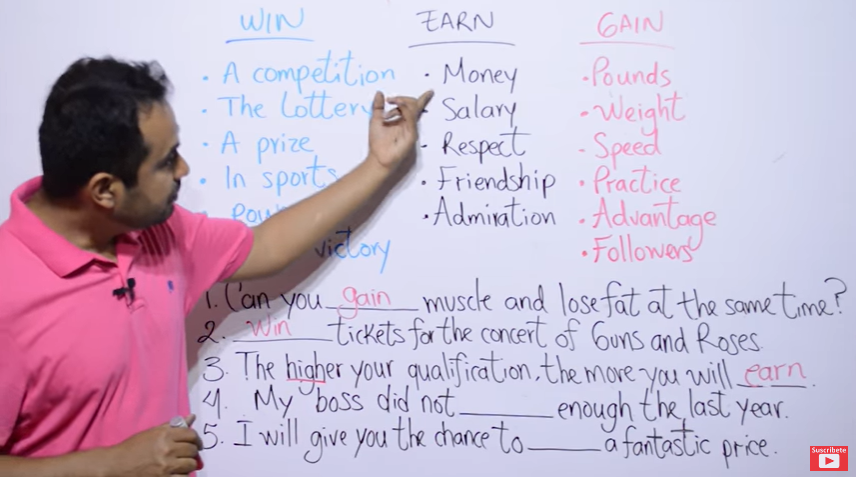 WIN
· A competition
· The Lottery
· A prize
· In sports
victory
EARN
· Money
· Salary
· Respect
· Friendship
· Admiration
GAIN
· Pounds
· Weight
· Speed
· Practice
· Advantage
· Followers
1. Can you gain muscle and lose fat at the same time?
2. Win tickets for the concert of Guns and Roses
3. The higher your qualification, the more you will earn.
4. My boss did not ______ enough the last year.
5. I will give you the chance to ______ a fantastic price.
Suscríbete